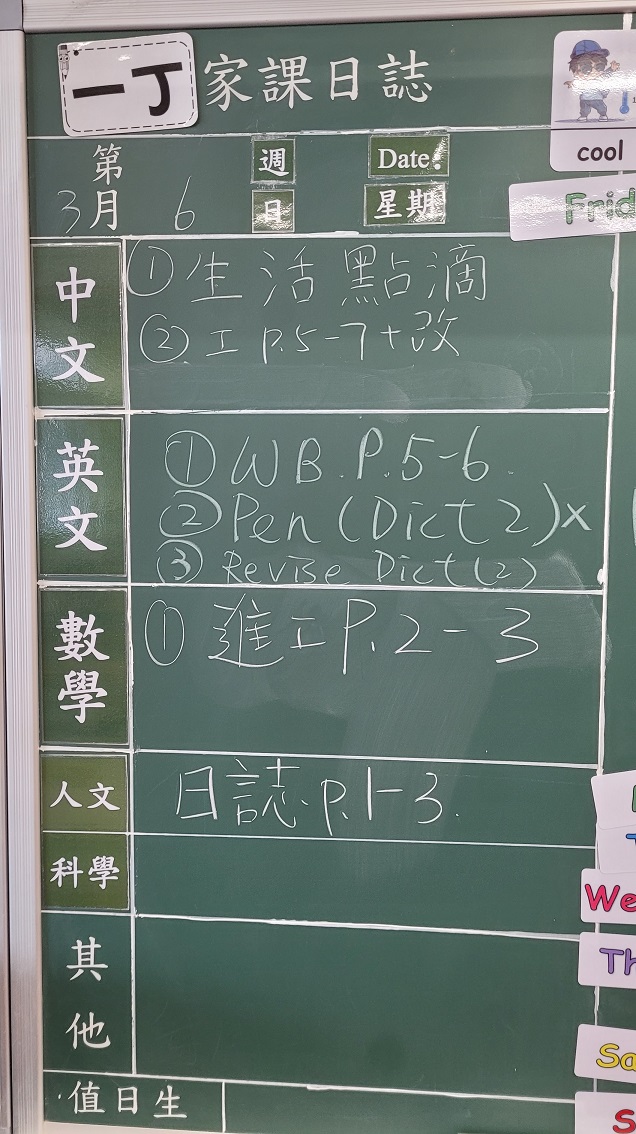 一丁 家課日誌
cool
第 週 Date:
3月 6 日 星期 Frid
中文
① 生活點滴
② 工 P.5-7+改
英文
① WB.P.5-6.
② Pen (Dict 2)×
③ Revise Dict (2)
數學
① 進工 P.2-3
人文
日誌.p.1-3.
科學
We
其他
Th
Sa
值日生
S